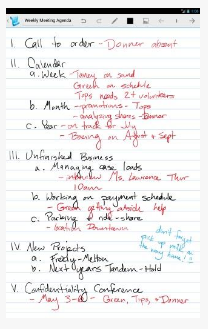 Weekly Meeting Agenda
I. Call to order - Donner absent
II. Calendar
a. Week - Timing on
Green on schedule
Tops needs 2+ volunteers
b. Month - promotions - Tops
- analyzing shares - Donner
c. Year - on track for July
- Boeing on August & Sept
III. Unfinished Business
a. Managing case loads
- interview Ms. Lawrence Thur
10am
b. Working on payment schedule
- Green getting outside help
c. Parking & ride-share
- location Downtown
don't forget
pick up milk on
the way home!!
IV. New Projects
a. Freddy - Melton
b. Next years Tandem - Hold
V. Confidentiality Conference
- May 3-6 - Green, Tips, & Donner